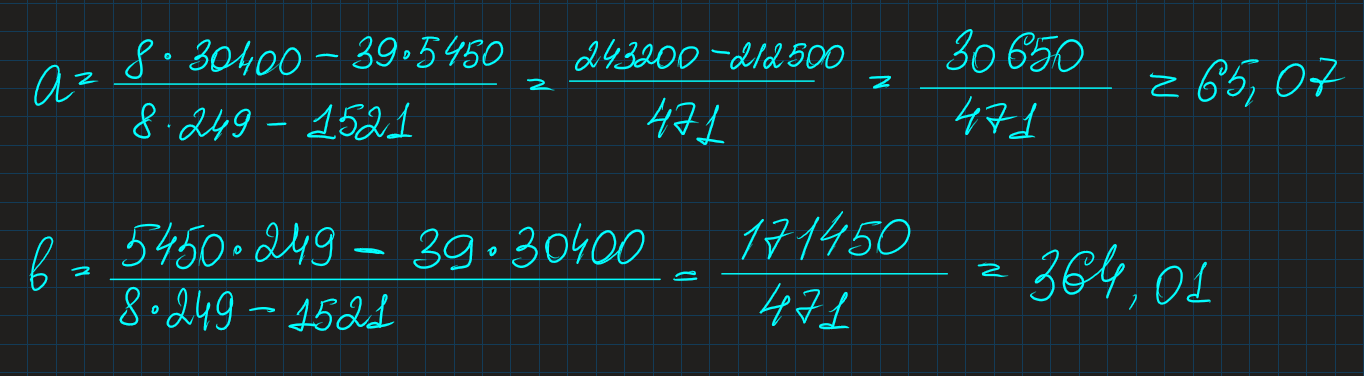 a = (8 · 30400 − 39 · 5450) / (8 · 249 − 1521) = (243200 − 212500) / 471 = 30650 / 471 = 65,07
b = (5450 · 249 − 39 · 30400) / (8 · 249 − 1521) = 171450 / 471 = 364,01